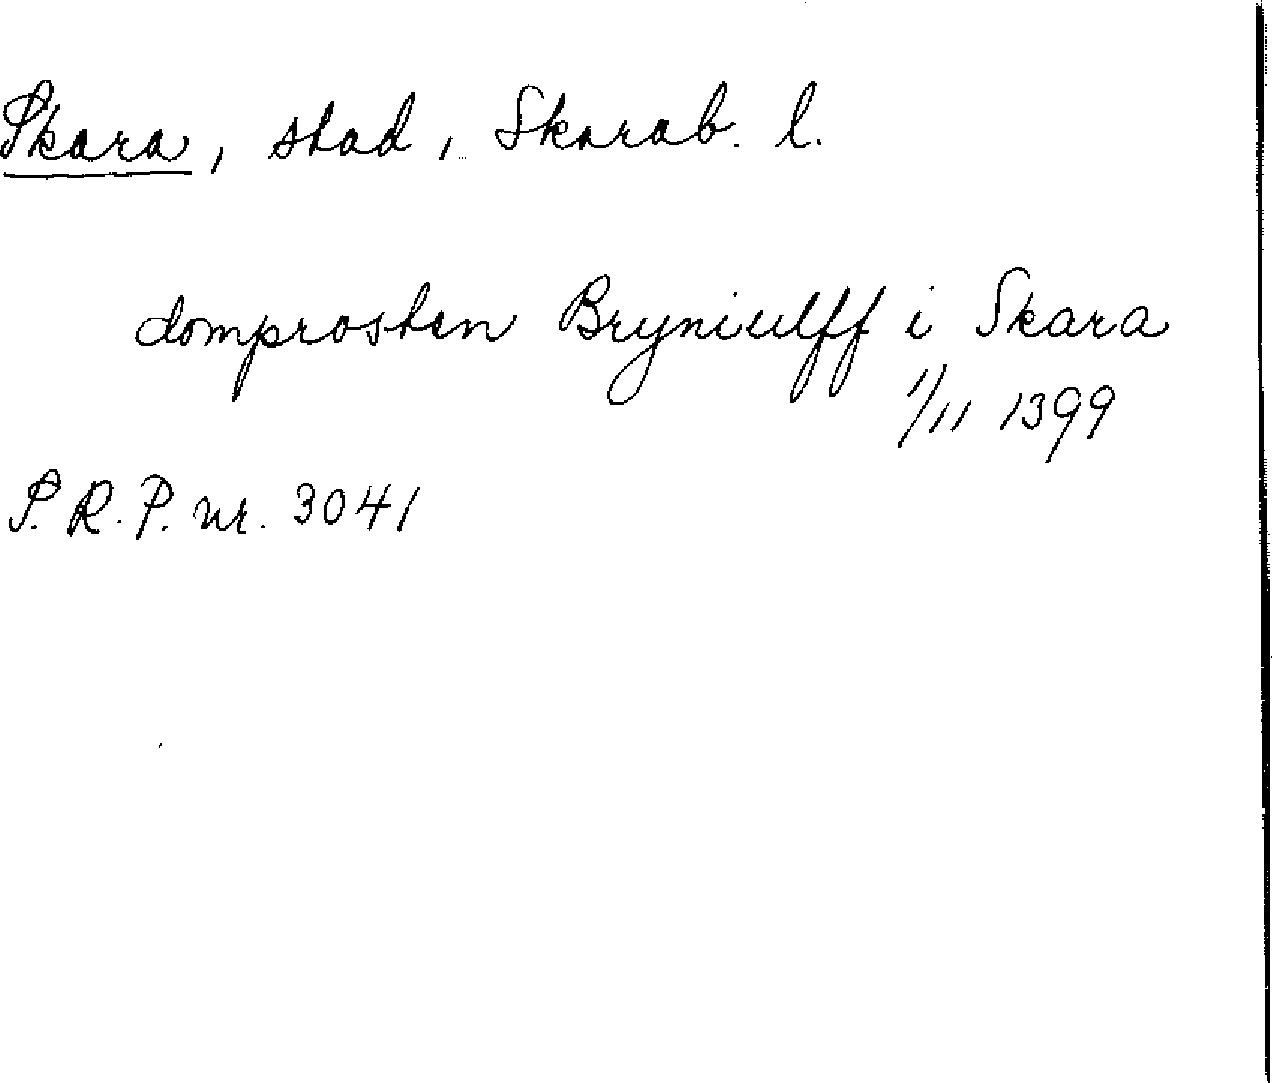 Skara, stad, Skarab. l.
domprosten Bryniulff i Skara
1/11 1399
S.R.P. nr. 3041